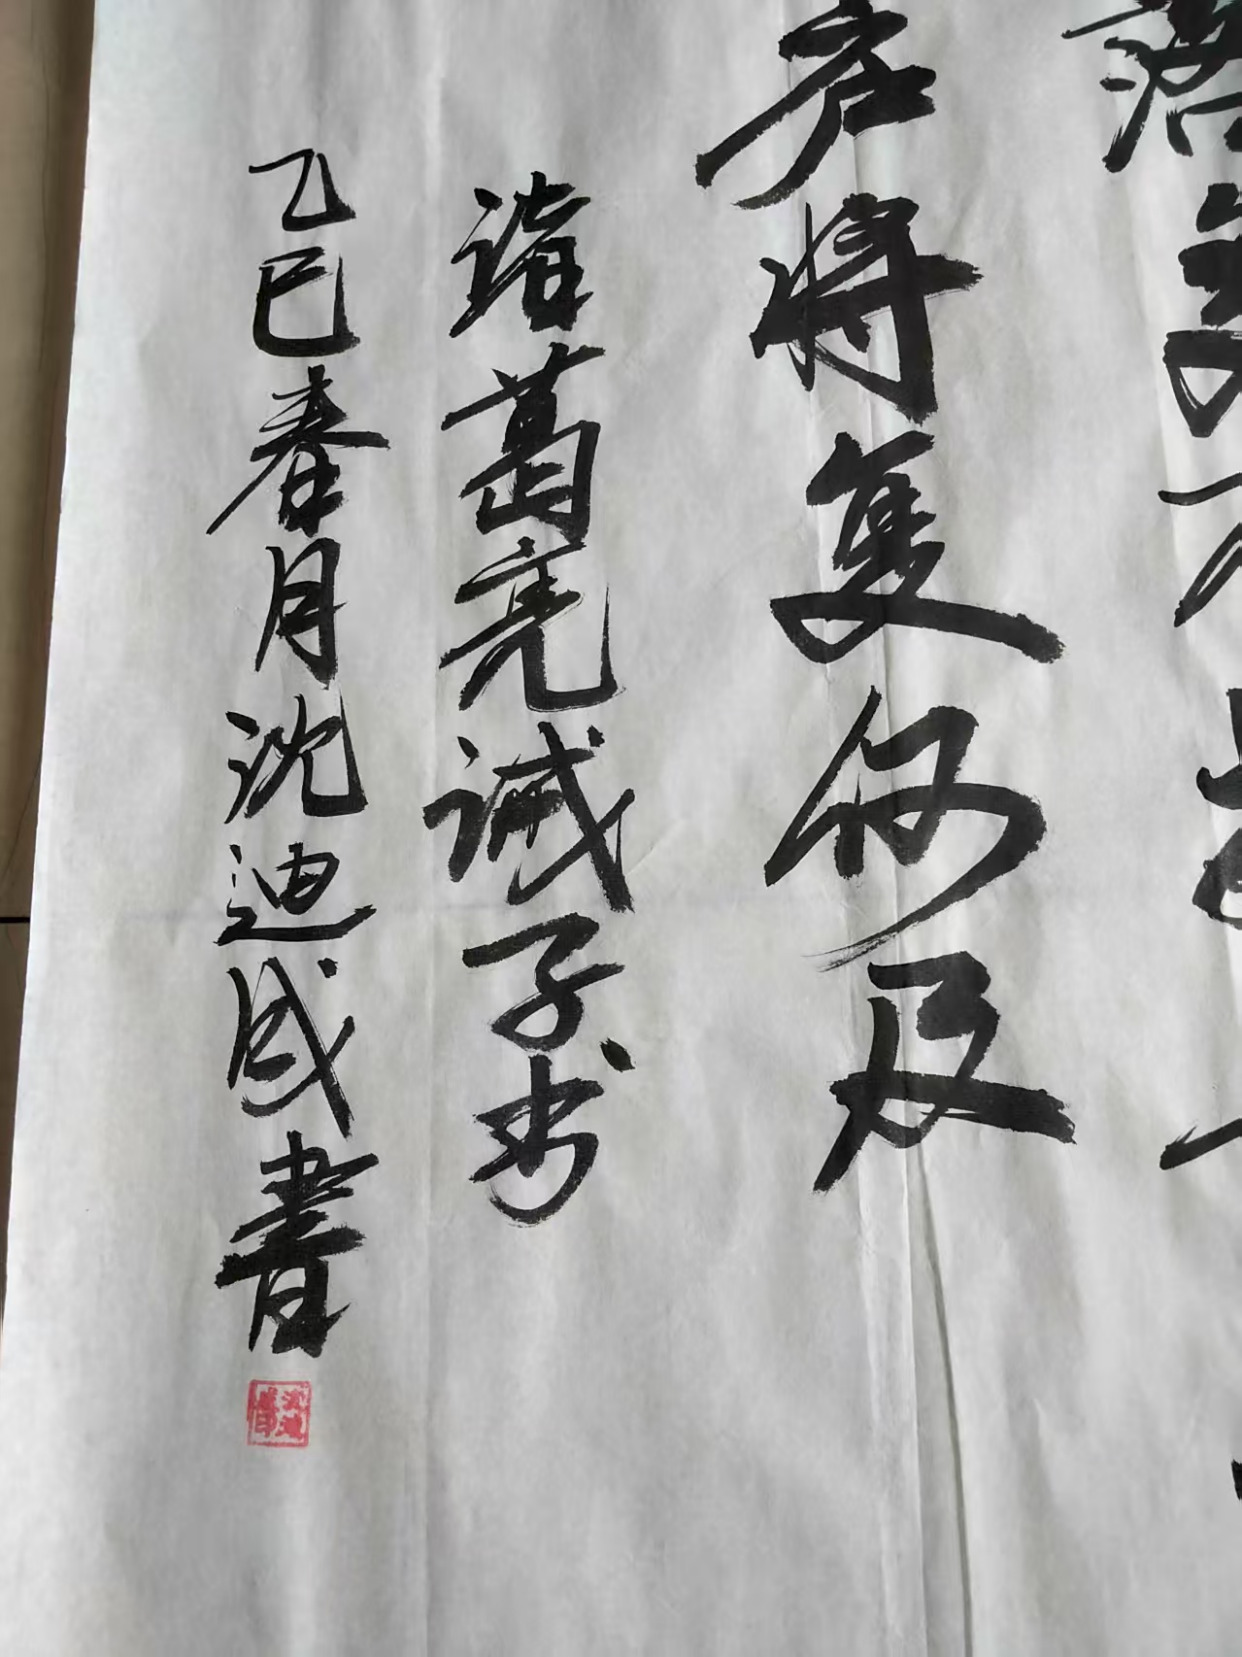 落复不
庐将复何及
诸葛亮诫子书
乙巳春月沈迪成書